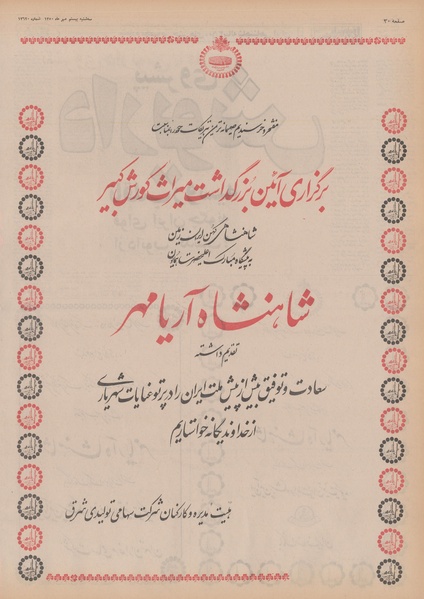 صفحه ۳۰
سه‌شنبه بیستم مهر ماه ۱۳۵۰ شماره
مفتخر و خرسندیم صمیمانه‌ترین تبریکات خود را بمناسبت
برگزاری آئین بزرگداشت میراث کورش کبیر
شاهنشاهی کهن ایران زمین
به پیشگاه مبارک اعلیحضرت همایون
شاهنشاه آریامهر
تقدیم داشته
سعادت و توفیق بیش از پیش ملت ایران را در پرتو عنایات شهریاری
از خداوند یگانه خواستاریم
هیئت مدیره و کارکنان شرکت سهامی تولیدی شرق